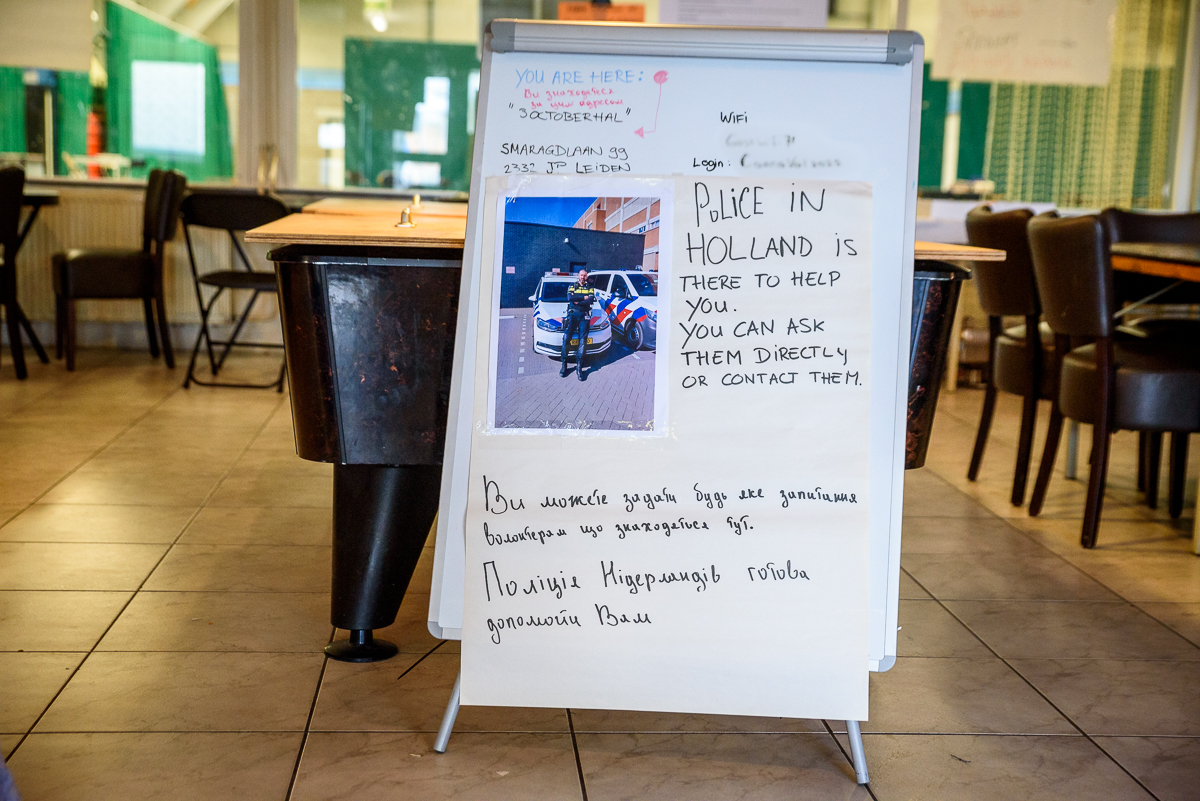 YOU ARE HERE:
Ви знаходитеся
за цим адресом
"3 OCTOBERHAL"
SMARAGDLAAN 99
2332 JP LEIDEN
WiFi
Login:
POLICE IN
HOLLAND IS
THERE TO HELP
YOU.
YOU CAN ASK
THEM DIRECTLY
OR CONTACT THEM.
Ви можете задати будь яке запитання
волонтерам що знаходяться тут.
Поліція Нідерландів готова
допомогти Вам